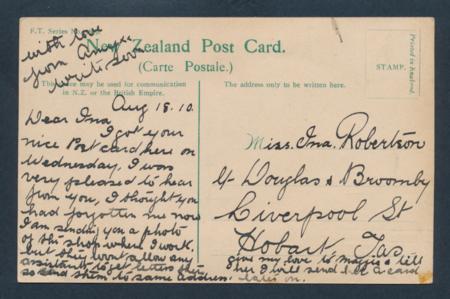 F.T. Series No.
with love
from
write soon
New Zealand Post Card.
(Carte Postale.)
STAMP.
Printed in
This space may be used for communication
in N.Z. or the British Empire.
The address only to be written here.
Aug 18.10.
Dear Ina
I got your
nice Post card here on
Wednesday, I was
very pleased to hear
from you, I thought you
had forgotten me now
I am sending you a photo
of the shop where I work,
but they wont allow any
assistants to get letters there
so send them to same address.
Miss. Ina. Robertson
Douglas & Broomby
Liverpool St
Hobart Tas
give my love to & tell
her I will send her a card
later on.